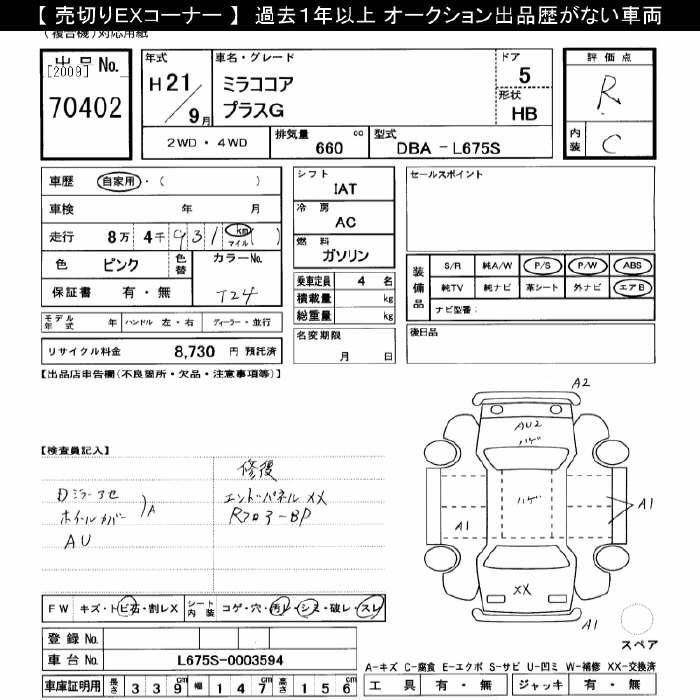 【 売切りEXコーナー 】 過去1年以上 オークション出品歴がない車両
(複合機)対応用紙
出品 No.
[2009]
70402
年式
H21/9月
車名・グレード
ミラココア
プラスG
ドア
5
形状
HB
2WD ・ 4WD
排気量 cc
660
型式
DBA - L675S
評価点
R
内装
C
車歴 自家用・( )
車検 年 月
走行 8万 4千 931 km マイル ( )
色 ピンク 色替 カラーNo.
保証書 有・無 T24
モデル年式 年 ハンドル 左・右 ディーラー・並行
リサイクル料金 8,730 円 預託済
シフト
IAT
冷房
AC
燃料
ガソリン
乗車定員 4 名
積載量 kg
総重量 kg
名変期限
月 日
セールスポイント
装備品
S/R 純A/W P/S P/W ABS
純TV 純ナビ 革シート 外ナビ エアB
ナビ型番:
後日品
【出品店申告欄(不良箇所・欠品・注意事項等)】
【検査員記入】
Dミラーアセ
ホイールカバー
)A
AU
修後
エンドパネル XX
Rフロアー BP
A2
AU2
ハゲ
ハゲ
A1
A1
XX
A1
スペア
FW キズ・トビ石・割レX シート内装 コゲ・穴・汚レ・シミ・破レ・スレ
登録 No.
車台 No. L675S-0003594
車庫証明用 長さ 339cm 幅 147cm 高さ 156cm
A-キズ C-腐食 E-エクボ S-サビ U-凹ミ W-補修 XX-交換済
工具 有・無 ジャッキ 有・無